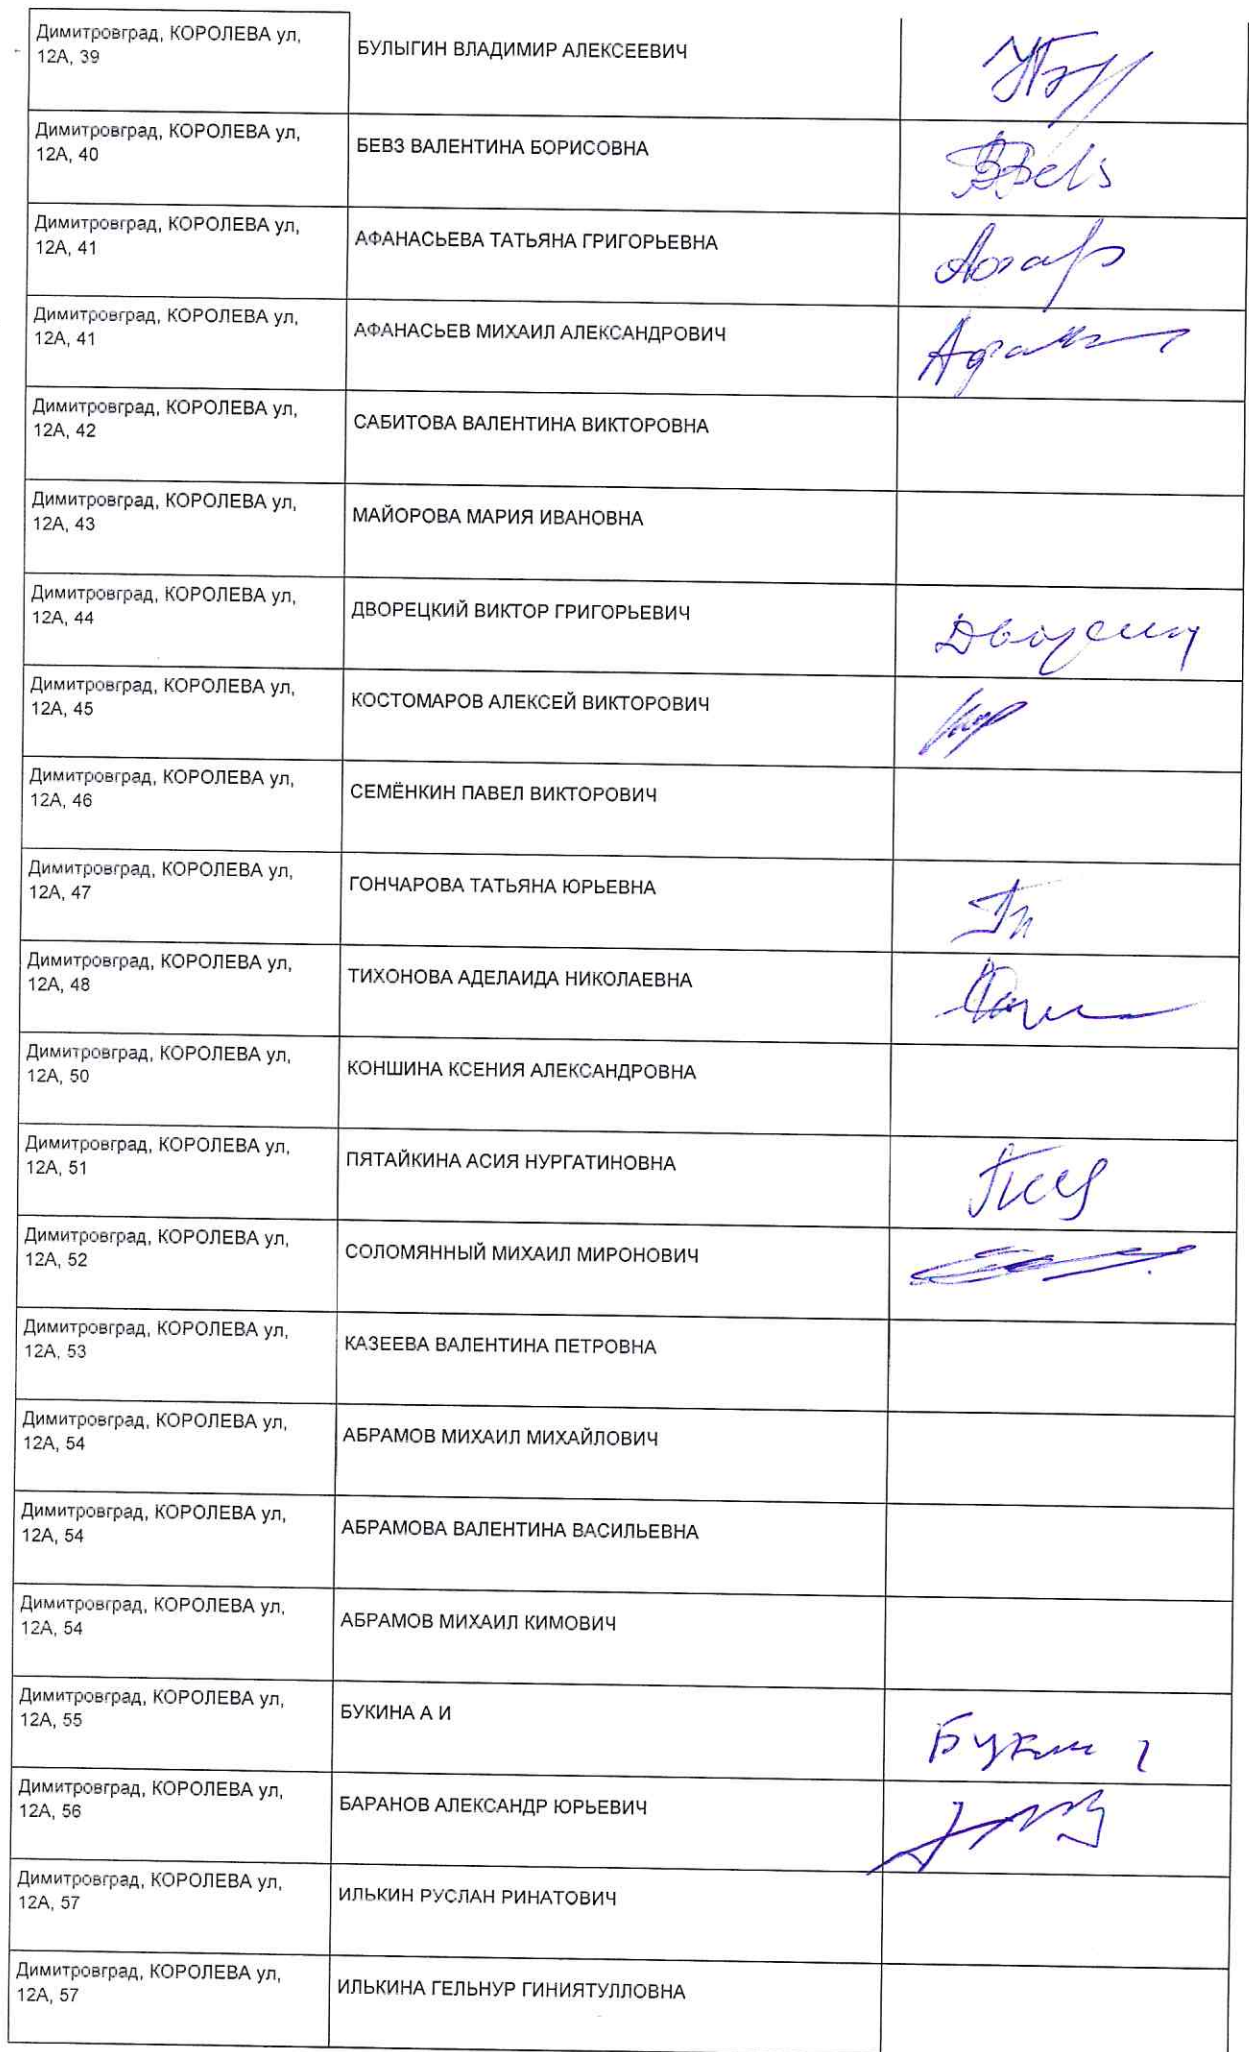 Димитровград, КОРОЛЕВА ул,
12А, 39
БУЛЫГИН ВЛАДИМИР АЛЕКСЕЕВИЧ
Димитровград, КОРОЛЕВА ул,
12А, 40
БЕВЗ ВАЛЕНТИНА БОРИСОВНА
Димитровград, КОРОЛЕВА ул,
12А, 41
АФАНАСЬЕВА ТАТЬЯНА ГРИГОРЬЕВНА
Димитровград, КОРОЛЕВА ул,
12А, 41
АФАНАСЬЕВ МИХАИЛ АЛЕКСАНДРОВИЧ
Димитровград, КОРОЛЕВА ул,
12А, 42
САБИТОВА ВАЛЕНТИНА ВИКТОРОВНА
Димитровград, КОРОЛЕВА ул,
12А, 43
МАЙОРОВА МАРИЯ ИВАНОВНА
Димитровград, КОРОЛЕВА ул,
12А, 44
ДВОРЕЦКИЙ ВИКТОР ГРИГОРЬЕВИЧ
Димитровград, КОРОЛЕВА ул,
12А, 45
КОСТОМАРОВ АЛЕКСЕЙ ВИКТОРОВИЧ
Димитровград, КОРОЛЕВА ул,
12А, 46
СЕМЁНКИН ПАВЕЛ ВИКТОРОВИЧ
Димитровград, КОРОЛЕВА ул,
12А, 47
ГОНЧАРОВА ТАТЬЯНА ЮРЬЕВНА
Димитровград, КОРОЛЕВА ул,
12А, 48
ТИХОНОВА АДЕЛАИДА НИКОЛАЕВНА
Димитровград, КОРОЛЕВА ул,
12А, 50
КОНШИНА КСЕНИЯ АЛЕКСАНДРОВНА
Димитровград, КОРОЛЕВА ул,
12А, 51
ПЯТАЙКИНА АСИЯ НУРГАТИНОВНА
Димитровград, КОРОЛЕВА ул,
12А, 52
СОЛОМЯННЫЙ МИХАИЛ МИРОНОВИЧ
Димитровград, КОРОЛЕВА ул,
12А, 53
КАЗЕЕВА ВАЛЕНТИНА ПЕТРОВНА
Димитровград, КОРОЛЕВА ул,
12А, 54
АБРАМОВ МИХАИЛ МИХАЙЛОВИЧ
Димитровград, КОРОЛЕВА ул,
12А, 54
АБРАМОВА ВАЛЕНТИНА ВАСИЛЬЕВНА
Димитровград, КОРОЛЕВА ул,
12А, 54
АБРАМОВ МИХАИЛ КИМОВИЧ
Димитровград, КОРОЛЕВА ул,
12А, 55
БУКИНА А И
Димитровград, КОРОЛЕВА ул,
12А, 56
БАРАНОВ АЛЕКСАНДР ЮРЬЕВИЧ
Димитровград, КОРОЛЕВА ул,
12А, 57
ИЛЬКИН РУСЛАН РИНАТОВИЧ
Димитровград, КОРОЛЕВА ул,
12А, 57
ИЛЬКИНА ГЕЛЬНУР ГИНИЯТУЛЛОВНА